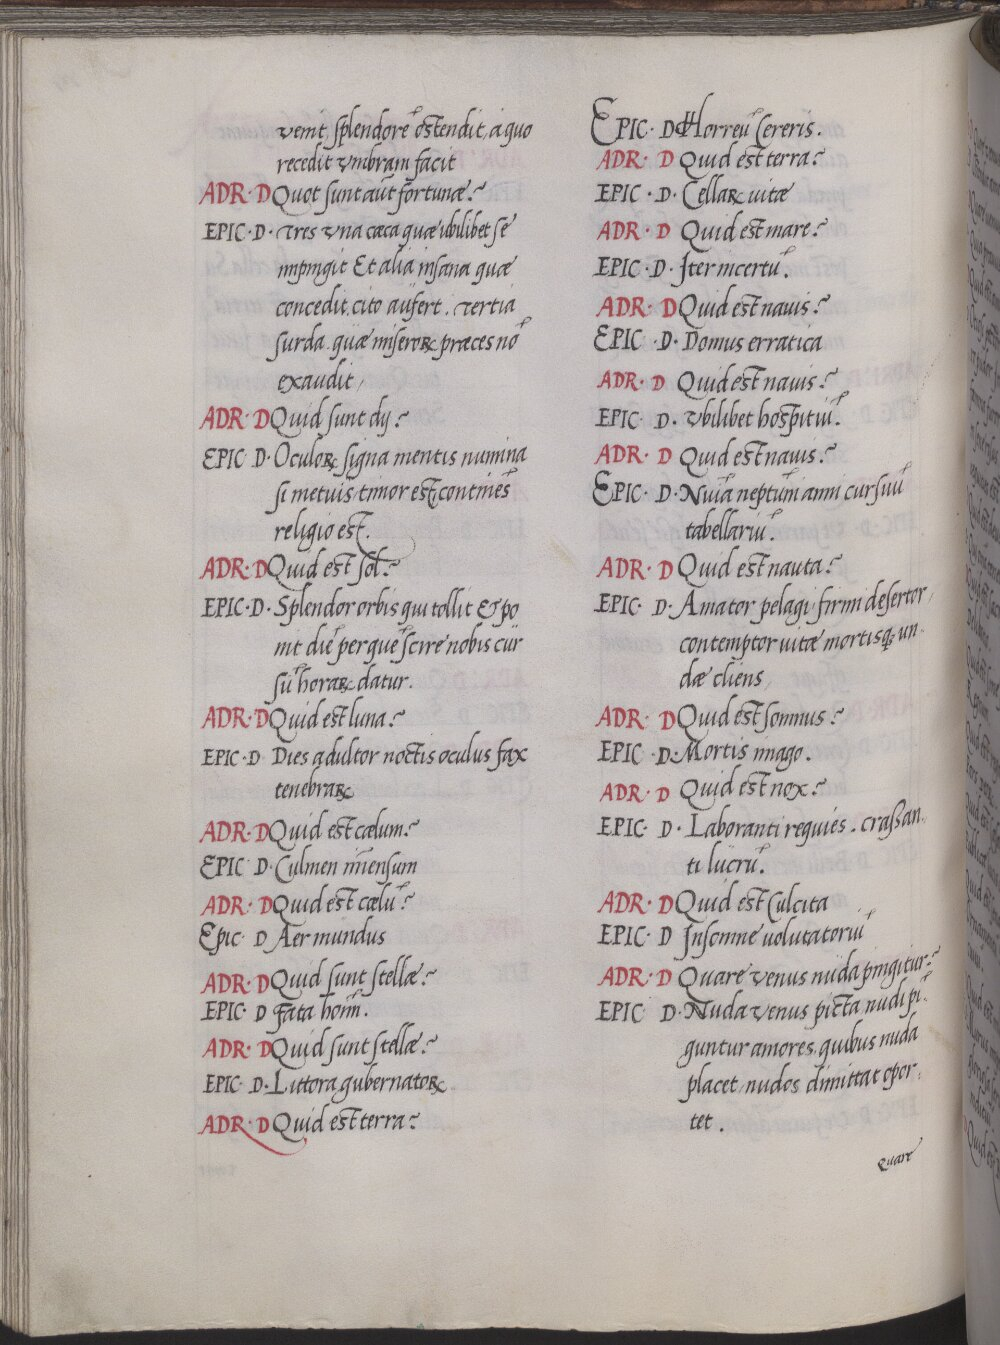 venit, splendorē ostendit, a quo
recedit vmbram facit
ADR · D Quot sunt aūt fortunæ?
EPIC · D · Tres vna cæca quæ vbilibet se
impingit Et alia insana quæ
concedit, cito aūfert. Tertia
surda. quæ miseroꝝ præces nō
exaudit,
ADR · D Quid sunt dij?
EPIC D · Oculoꝝ signa mentis numina
si metuis, timor est, continēs
religio est.
ADR · D Quid est sol?
EPIC · D · Splendor orbis qui tollit & po
nit diē per quē scire nobis cūr
sū horaꝝ datur.
ADR · D Quid est luna?
EPIC · D Dies adultor noctis oculus fax
tenebraꝝ
ADR · D Quid est cælum?
EPIC D · Culmen im̄ensum
ADR · D Quid est cælū?
Epic D Aer mūndus
ADR · D Quid sunt stellæ?
EPIC · D Fata homī.
ADR · D Quid sunt stellæ?
EPIC · D · Littora gubernatoꝝ
ADR · D Quid est terra?
EPIC · D Horreū Cereris.
ADR · D Quid est terra?
EPIC · D · Cellaꝝ uitæ
ADR · D Quid est mare?
EPIC · D · Iter incertū.
ADR · D Quid est nauis?
EPIC · D · Domus erratica
ADR · D Quid est nauis?
EPIC · D · Vbilibet hospitiū.
ADR · D Quid est nauis?
EPIC · D · Nuīa neptūni anni cursuū
tabellariū.
ADR · D Quid est nauta?
EPIC · D · Amator pelagi, firmi desertor,
contemptor uitæ mortisqꝫ un
dæ cliens,
ADR · D Quid est somnus?
EPIC · D · Mortis imago.
ADR · D Quid est nox?
EPIC · D · Laboranti requies. craßan
ti lūcrū.
ADR · D Quid est Culcita
EPIC · D Insomne uolutatoriū
ADR · D Quare venus nūda pingitur?
EPIC · D · Nuda venus picta nudi pi
guntur amores, quibus nuda
placet, nudos dimittat opor
tet.
Quare